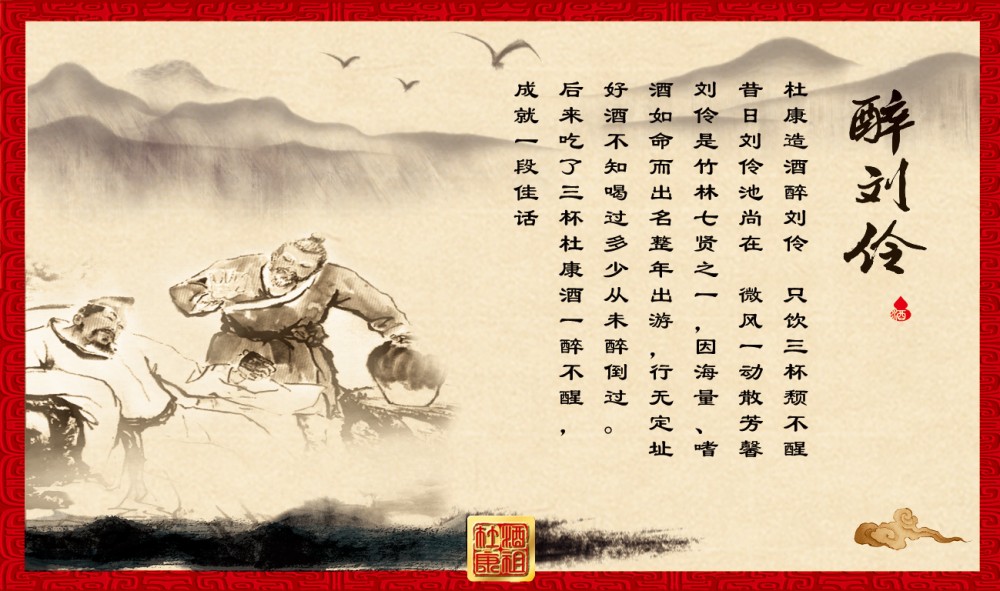 醉刘伶
酒
杜康造酒醉刘伶 只饮三杯颓不醒
昔日刘伶池尚在 微风一动散芳馨
刘伶是竹林七贤之一,因海量、嗜
酒如命而出名整年出游,行无定址
好酒不知喝过多少从未醉倒过。
后来吃了三杯杜康酒一醉不醒,
成就一段佳话
酒祖
杜康